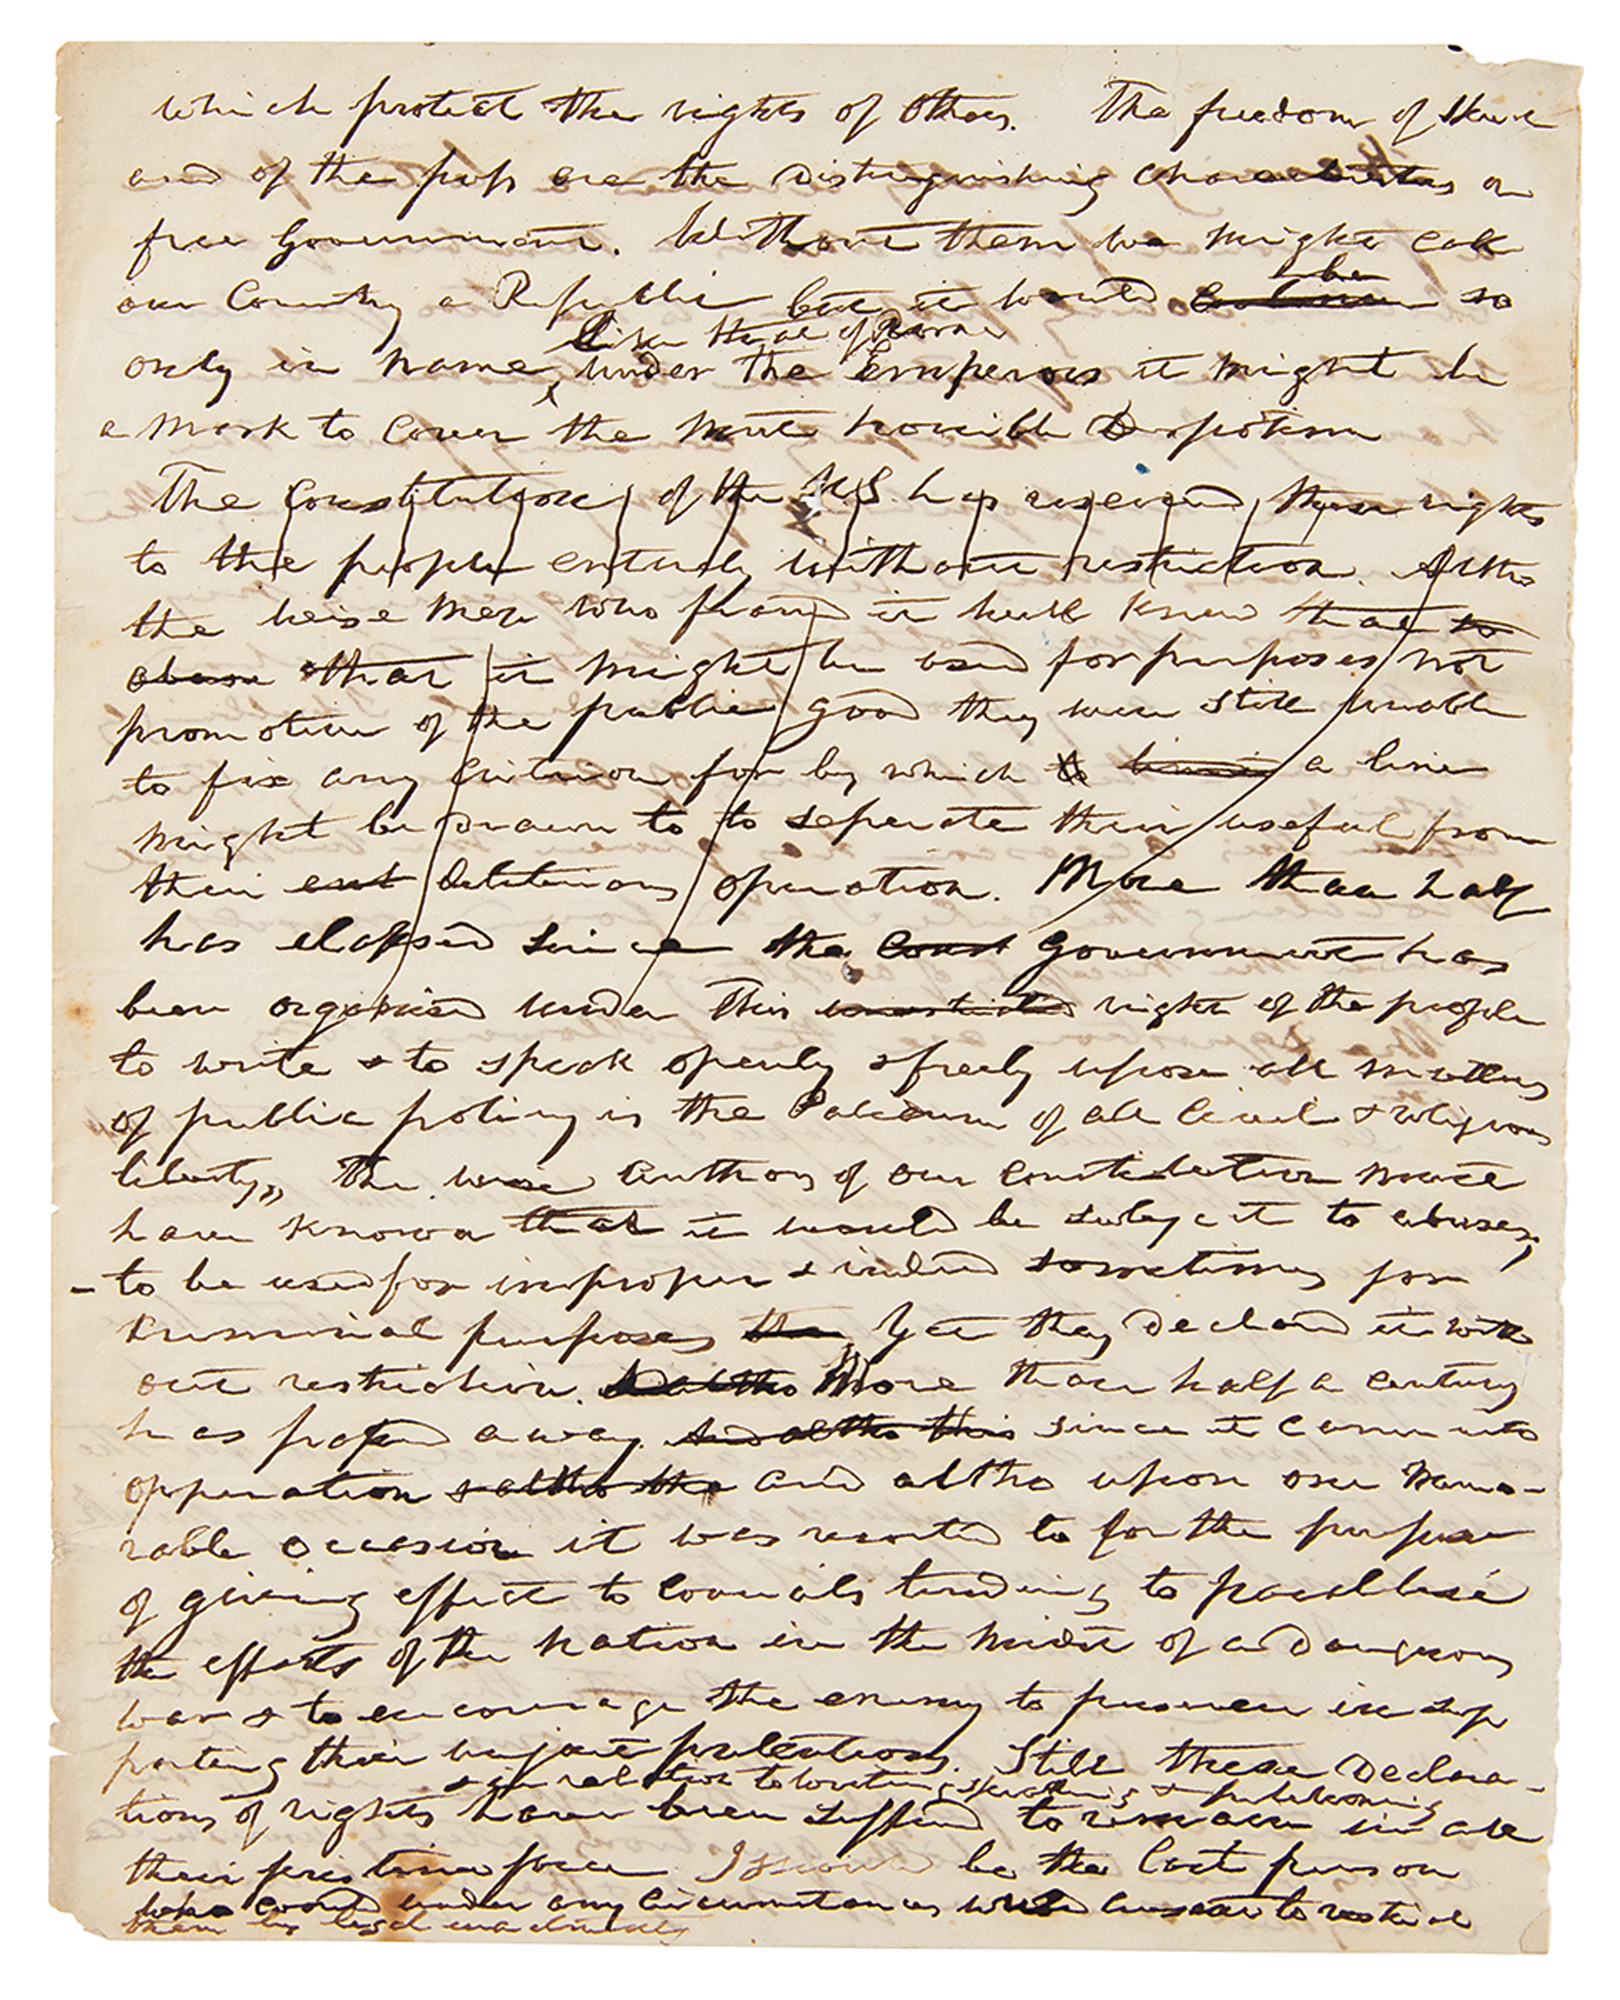 which protect the rights of others. The freedom of
and of the press are the distinguishing of
free Government. Without them we might call
our Country a Republic but it would be so
like that of Rome
only in name, under the Emperors it might be
a mask to cover the most horrible Despotism
The Constitution of the U.S. has reserved these rights
to the people entirely without restriction. Altho
the wise men who framed it well knew that to
that it might be used for purposes not
promotive of the public good they were still unable
to fix any criterion for by which to a line
might be drawn to to seperate their useful from
their deleterious operation. More than half
has elapsed since the Const Government has
been organised under This right of the people
to write & to speak openly & freely upon all matters
of public policy is the of all Civil & religious
liberty,, The wise authors of our constitution must
have known that it would be subject to abuses,
- to be used for improper & indeed sometimes for
criminal purposes the Yet they Declared it with
out restriction. & altho More than half a century
has passed away. And altho this since it came into
opperation & altho the and altho upon one memo-
rable occasion it was resorted to for the purpose
of giving effect to Councils tending to
the efforts of the nation in the midst of a Dangerous
war & to encourage the enemy to persevere in sup
porting their unjust pretentions. Still these Declara-
& in relation to writing speaking & publishing
tions of rights have been suffered to remain in all
their pristine force I should be the last person
who could under any circumstances consent to restrict
them by legal enactments